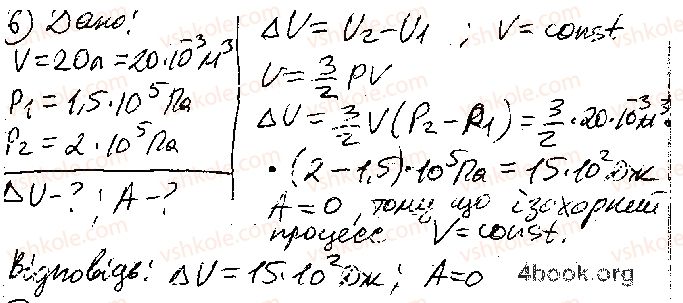 6) Дано:
V = 20л = 20·10⁻³м³
P₁ = 1,5·10⁵Па
P₂ = 2·10⁵Па
ΔU-?; A-?
ΔU = U₂-U₁ ; V = const
U = 3/2 PV
ΔU = 3/2 V(P₂-P₁) = 3/2 · 20·10⁻³м³·
·(2-1,5)·10⁵Па = 15·10²Дж
A = 0, тому що ізохорний
процесс V = const.
Відповідь: ΔU = 15·10²Дж; A=0
4book.org